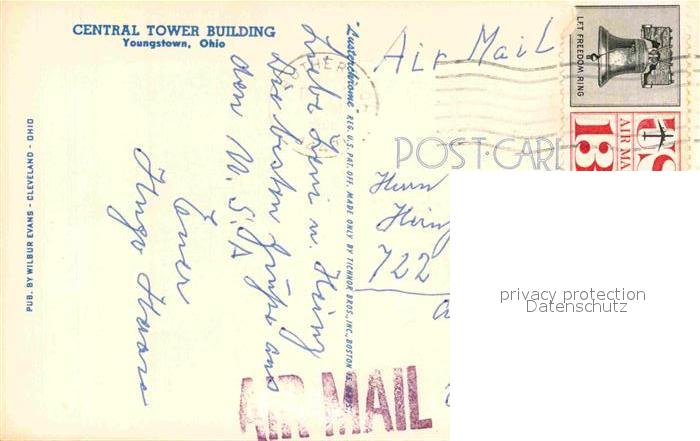 CENTRAL TOWER BUILDING
Youngstown, Ohio
Liebe Leni u. Heinz
Die besten Grüße aus
den U.S.A
Euer
Hugo
"Lusterchrome" REG. U.S. PAT. OFF. MADE ONLY BY TICHNOR BROS. INC., BOSTON
PUB. BY WILBUR EVANS - CLEVELAND - OHIO
Air Mail
LET FREEDOM RING
US
AIR MA
13
POST CAR
Herrn
Heinz
722
AIR MAIL
privacy protection
Datenschutz